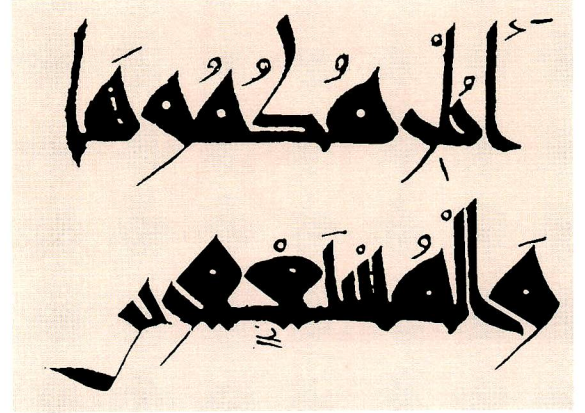 أَنُلْزِمُكُمُوهَا
وَالْمُسْتَغْفِرِين